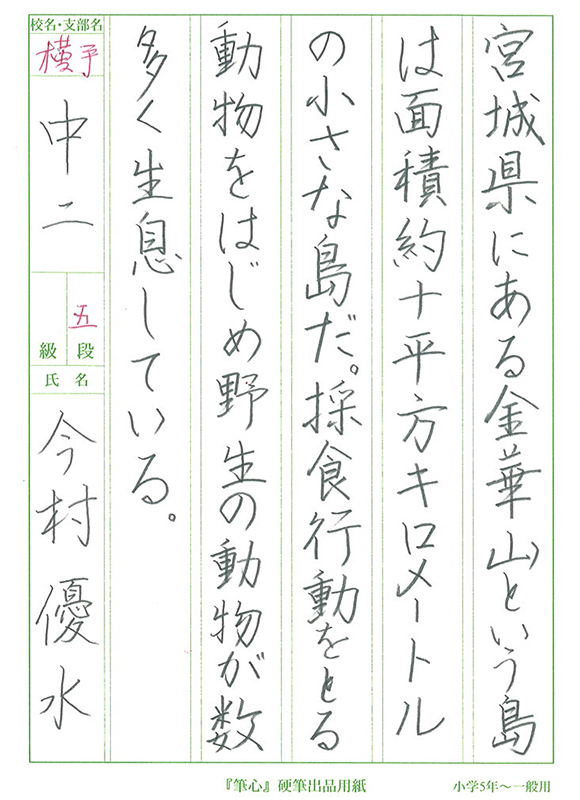 宮城県にある金華山という島
は面積約十平方キロメートル
の小さな島だ。採食行動をとる
動物をはじめ野生の動物が数
多く生息している。
校名・支部名
横予
中二
五
級 段
氏 名
今村優水
『筆心』硬筆出品用紙
小学5年〜一般用